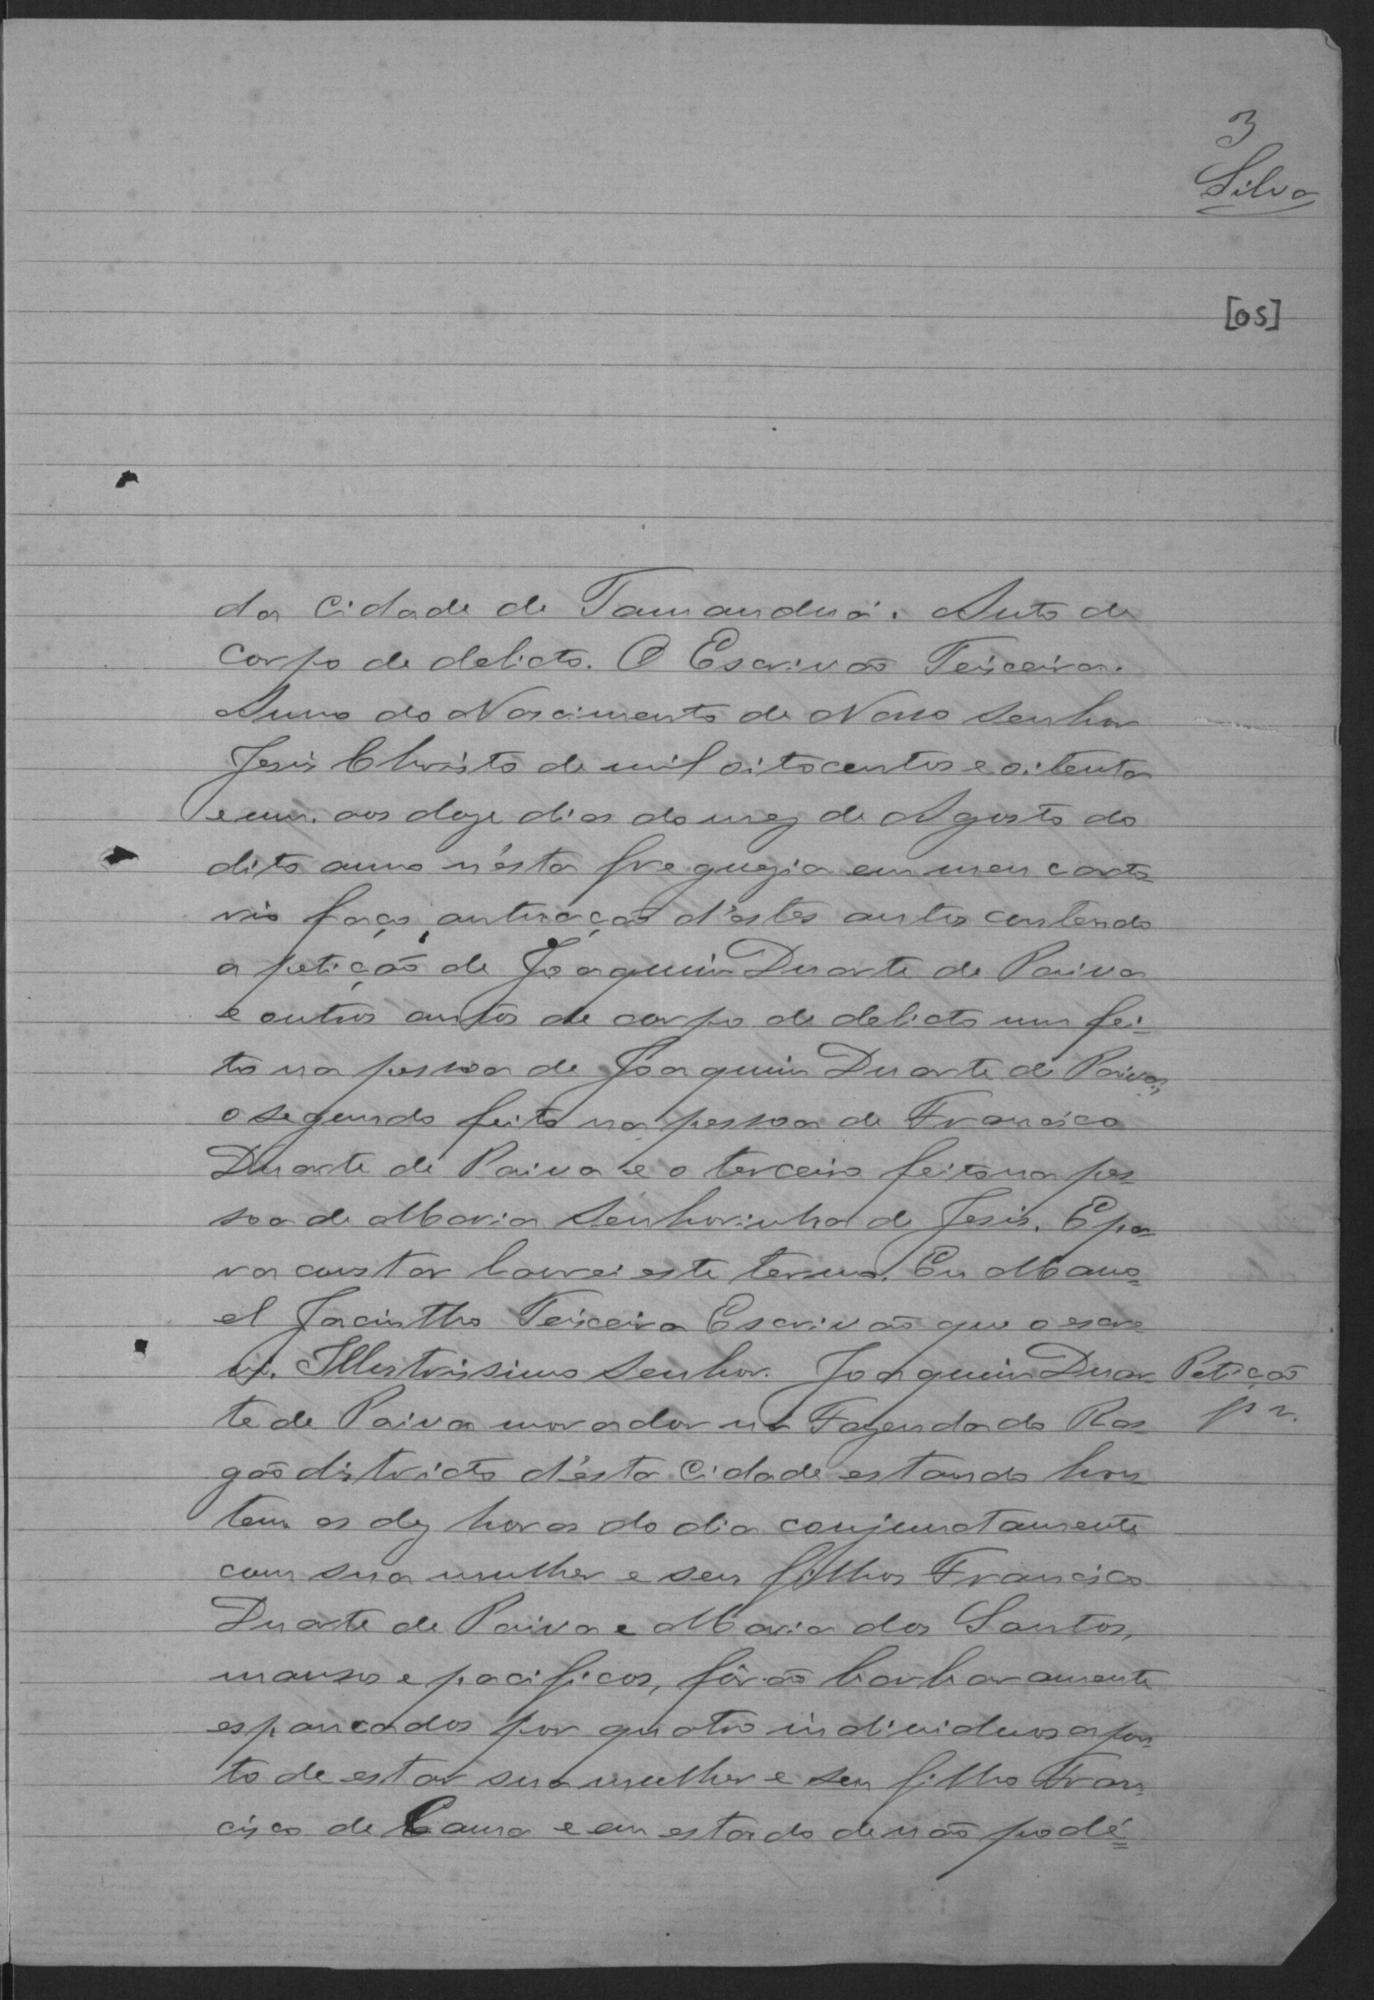 3
Silva
[05]
da Cidade de Tamanduá. Auto de
corpo de delicto. O Escrivão Teixeira.
Anno do Nascimento de Nosso Senhor
Jesus Christo de mil oitocentos e oitenta
e um. aos doze dias do mez de Agosto do
dito anno n'esta freguezia em meu carto
rio faço autuação d'estes autos contendo
a petição de Joaquim Duarte de Paiva
e outros autos de corpo de delicto um fei-
to na pessoa de Joaquim Duarte de Paiva,
o segundo feito na pessoa de Francisco
Duarte de Paiva e o terceiro feito na pes-
soa de Maria Senhorinha de Jesus. E pa-
ra constar lavrei este termo. Eu Mano=
el Jacintho Teixeira Escrivão que o escre
vi. Illustrissimo Senhor. Joaquim Duar-
Petição
te de Paiva morador na Fazenda do Ras-
gão districto d'ésta Cidade estando hon-
tem as dez horas do dia conjunctamente
com sua mulher e seus filhos Francisco
Duarte de Paiva e Maria dos Santos,
manso e pacificos, fôrão barbaramente
espancados por quatro individuos a pon-
to de estar sua mulher e seu filho Fran-
cisco de Cama e em estado de não podê=